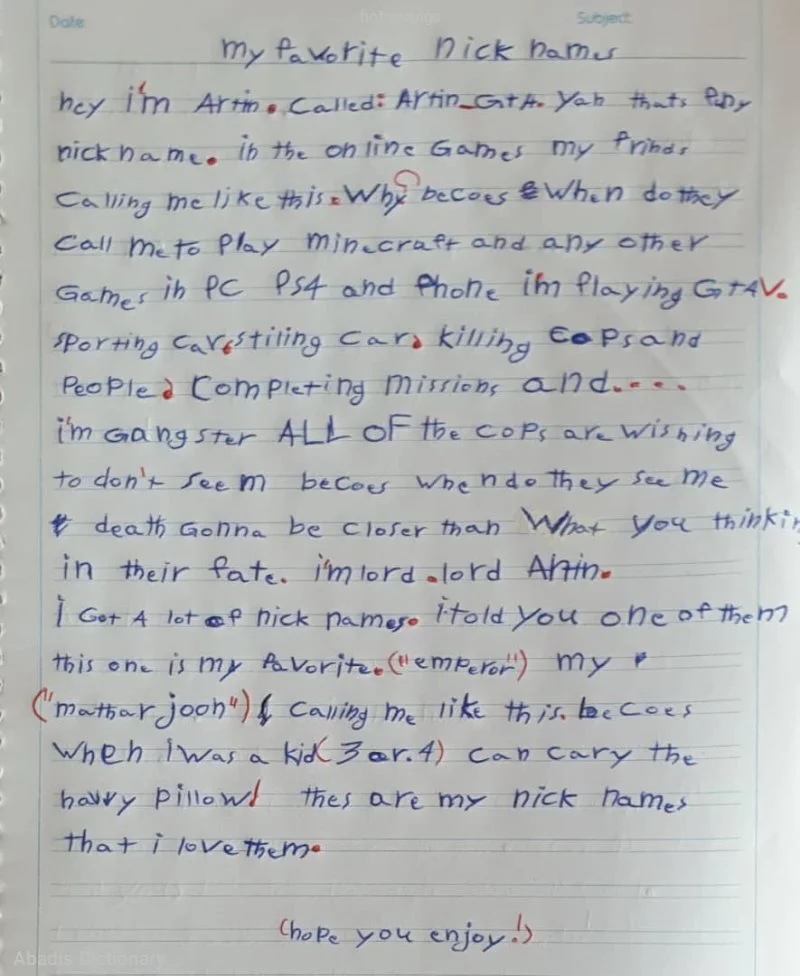 Date:
Subject:
my favorite nick names
hey i'm Artin. called: Artin_GtA. Yah thats my
nick name. in the online Games my frinds
calling me like this. Why? becoes When do they
call me to play minecraft and any other
Games in PC PS4 and Phone i'm Playing GtAV.
sporting car, stiling car, killing cops and
people, completing missions and....
i'm Gangster ALL OF the cops are wishing
to don't see m becoes when do they see me
death Gonna be closer than What you thinkin
in their fate. i'm lord .lord Artin.
i Got A lot of nick names. i told you one of them
this one is my favorite. ("emperor") my
("mathar joon") calling me like this. becoes
when i was a kid (3 or.4) can cary the
havvy pillow! thes are my nick names
that i love them.
(hope you enjoy!)
Abadis Dictionary